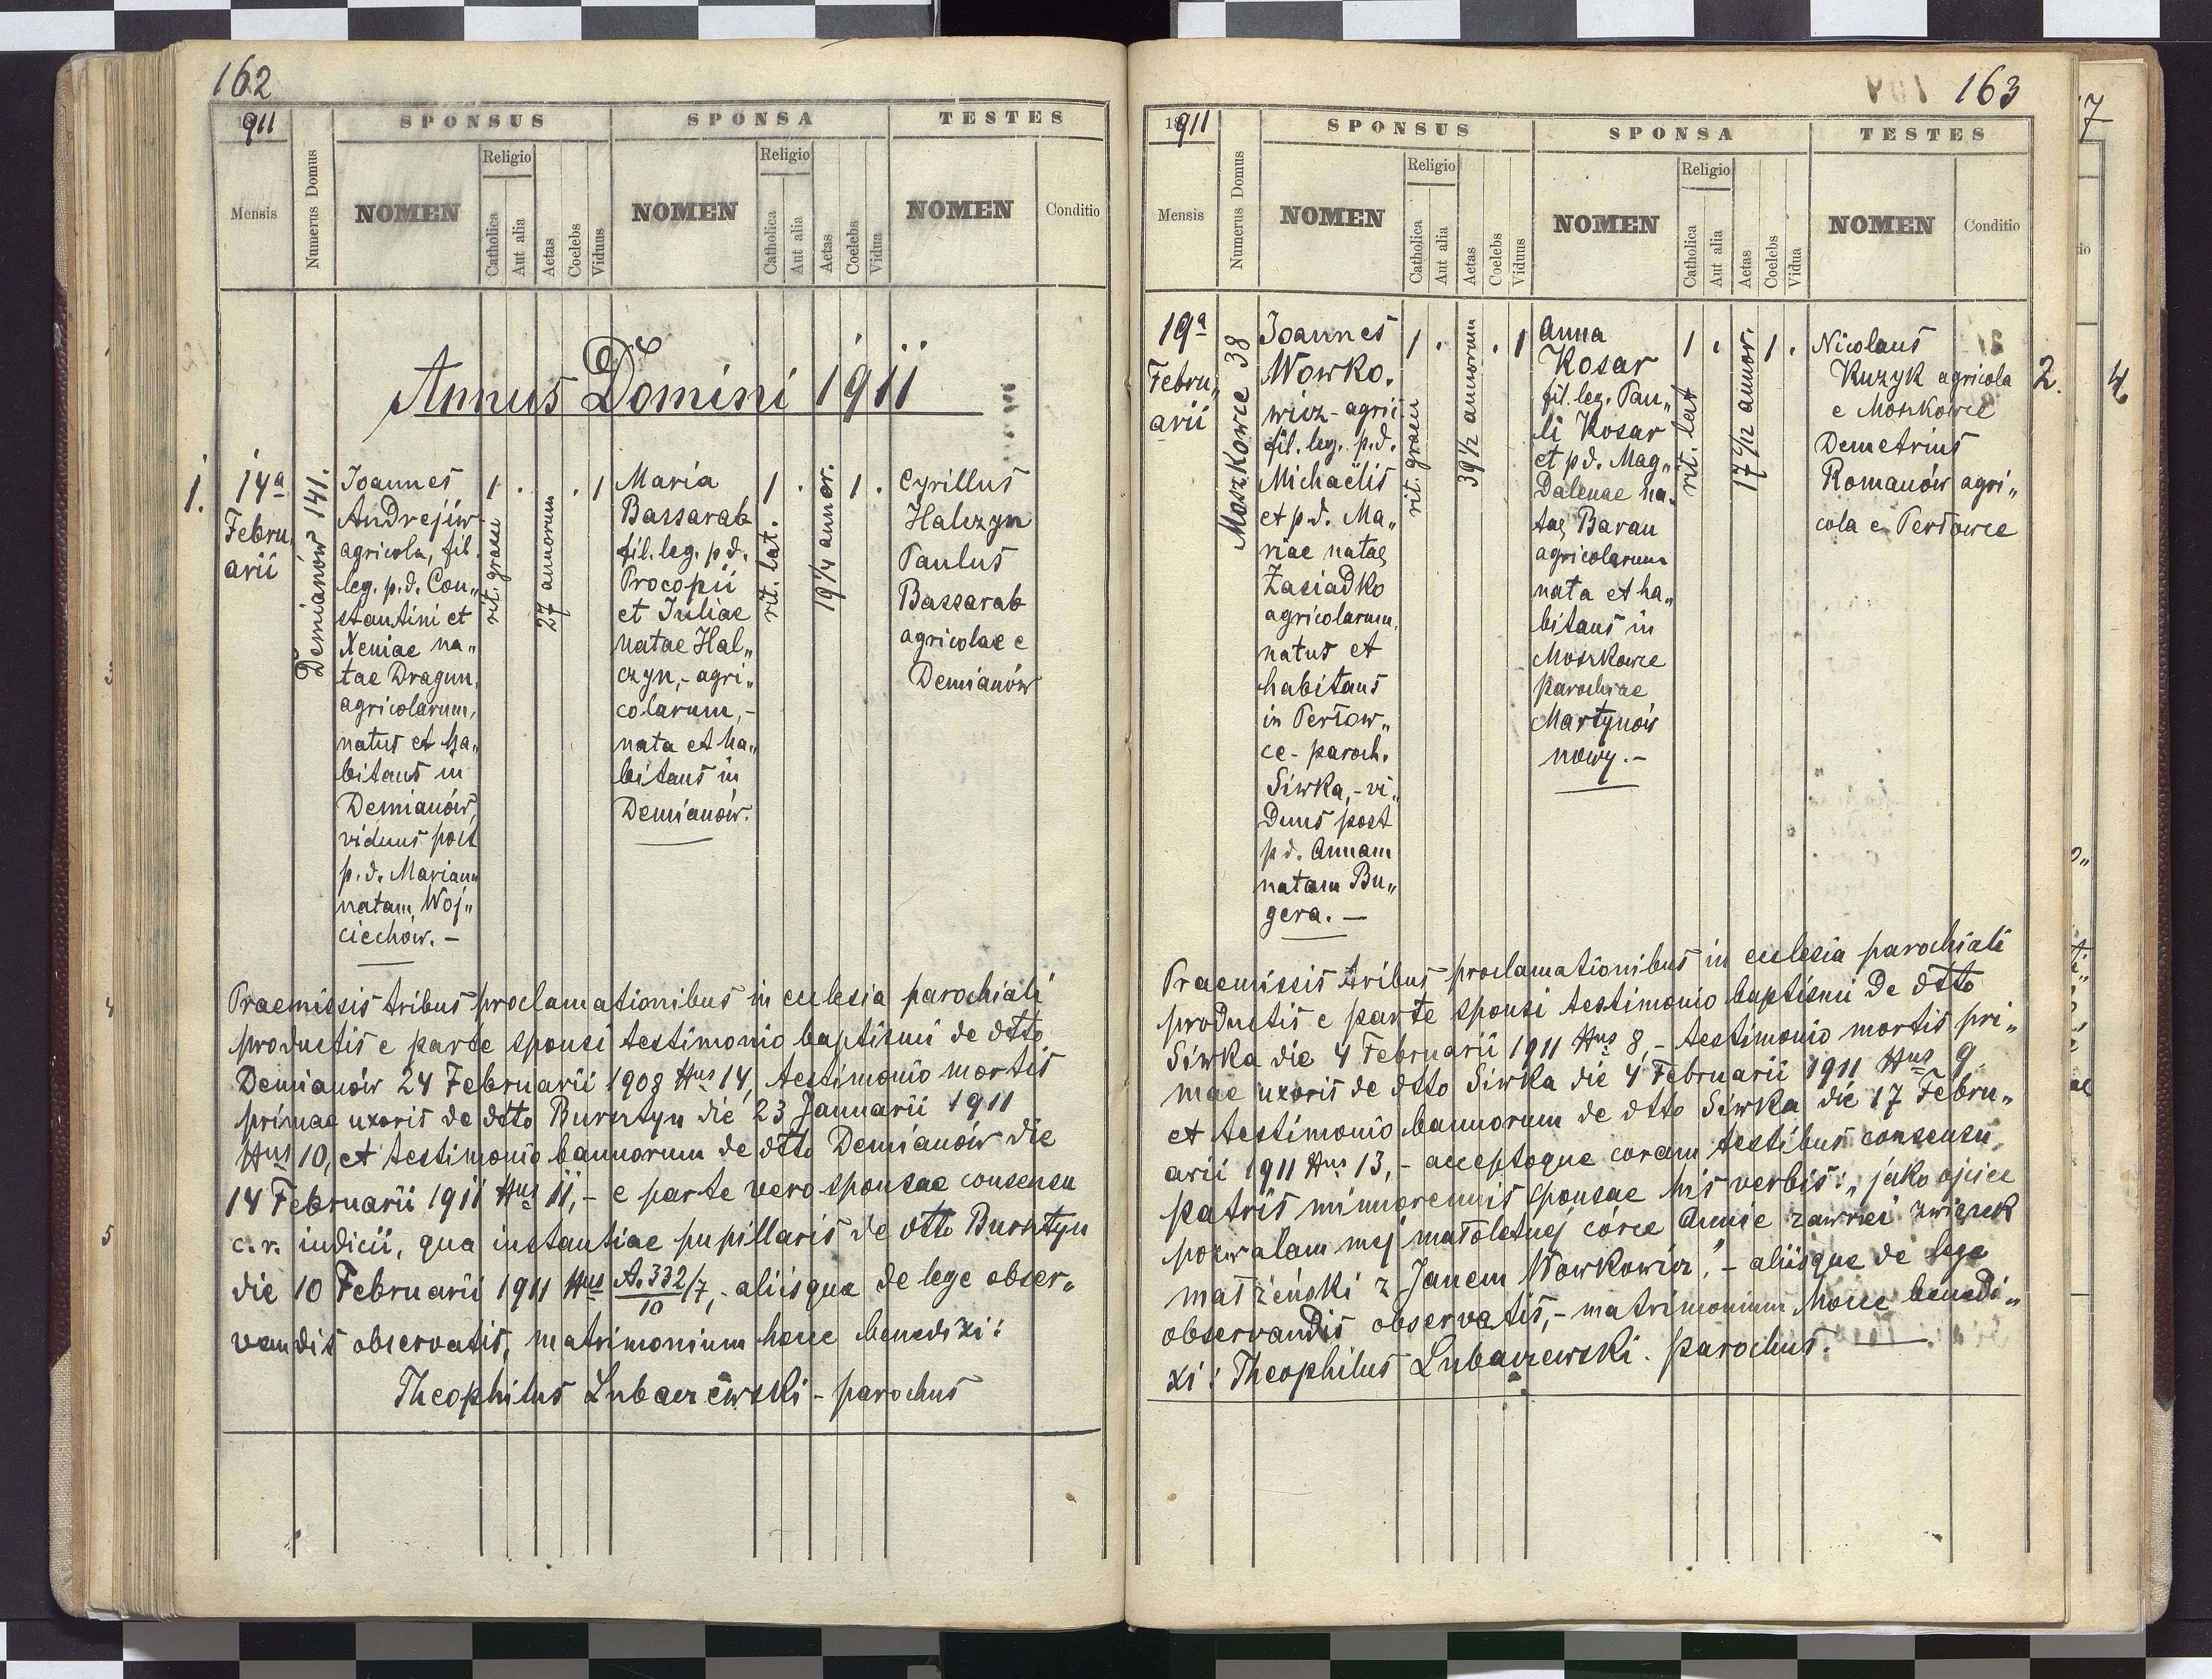 162
1911
SPONSUS
SPONSA
TESTES
Mensis
Numerus Domus
NOMEN
Religio
Catholica
Aut alia
Aetas
Coelebs
Viduus
NOMEN
Religio
Catholica
Aut alia
Aetas
Coelebs
Vidua
NOMEN
Conditio
Annus Domini 1911
1.
14a
Febru„
arii
Demianów 141.
Joannes
Andrejiw
agricola, fil.
leg. p.d. Con„
stantini et
Xeniae na„
tae Dragun,
agricolarum,
natus et ha„
bitans in
Demianów,
viduus post
p.d. Mariam
natam Woj„
ciechów. –
1 .
rit. graeci
27 annorum
. 1
Maria
Bassarab
fil. leg. p.d.
Procopii
et Juliae
natae Hal„
czyn,- agri„
colarum,-
nata et ha„
bitans in
Demianów.
1 .
rit. lat.
19 1/4 annor.
1 .
Cyrillus
Halczyn
Paulus
Bassarab
agricolae e
Demianów
Praemissis tribus proclamationibus in eclesia parochiali
productis e parte sponsi testimonio baptismi de dtto
Demianów 24 Februarii 1908 Nus 14, testimonio mortis
primae uxoris de dtto Bursztyn die 23 Januarii 1911
Nus 10, et testimonio bannorum de dtto Demianów die
14 Februarii 1911 Nus 11,- e parte vero sponsae consensu
c.r. iudicii, qua instantiae pupillaris de dtto Bursztyn
die 10 Februarii 1911 Nus A.332/10 /7,- aliisque de lege obser„
vandis observatis, matrimonium hocce benedixi:
Theophilus Lubaczewski - parochus
163
1911
SPONSUS
SPONSA
TESTES
Mensis
Numerus Domus
NOMEN
Religio
Catholica
Aut alia
Aetas
Coelebs
Viduus
NOMEN
Religio
Catholica
Aut alia
Aetas
Coelebs
Vidua
NOMEN
Conditio
19a
Febru„
arii
Moszkowce 38
Joannes
Wowko.
wicz - agric.
fil. leg. p.d.
Michaëlis
et p.d. Ma„
riae natae
Zasiadko
agricolarum,
natus et
habitans
in Perłow„
ce - paroch.
Siwka,- vi„
duus post
pd. Annam
natam Bu„
gera. –
1 .
rit. graeci
39 1/2 annorum
. 1
Anna
Kosar
fil. leg. Pau„
li Kosar
et pd. Mag„
dalenae na„
tae Baran
agricolarum
nata et ha„
bitans in
Moszkowce
parochiae
Martynów
nowy. –
1 .
rit. lat
17 6/12 annor.
1 .
Nicolaus
Kuzyk agricola
e Moszkowce
Demetrius
Romanów agri„
cola e Perłowce
2.
Praemissis tribus proclamationibus in eclesia parochiali
productis e parte sponsi testimonio baptismi de dtto
Siwka die 4 Februarii 1911 Nus 8,- testimonio mortis pri„
mae uxoris de dtto Siwka die 4 Februarii 1911 Nus 9
et testimonio bannorum de dtto Siwka die 17 Febru„
arii 1911 Nus 13,- acceptoque coram testibus consensu
patris minorennis sponsae his verbis: „jako ojciec
pozwalam mej małoletniej córce Annie zawrzei związek
małżeński z Janem Wowkowicz",- aliisque de lege
observandis observatis,- matrimonium hocce benedi„
xi: Theophilus Lubaczewski. parochus.
7
4